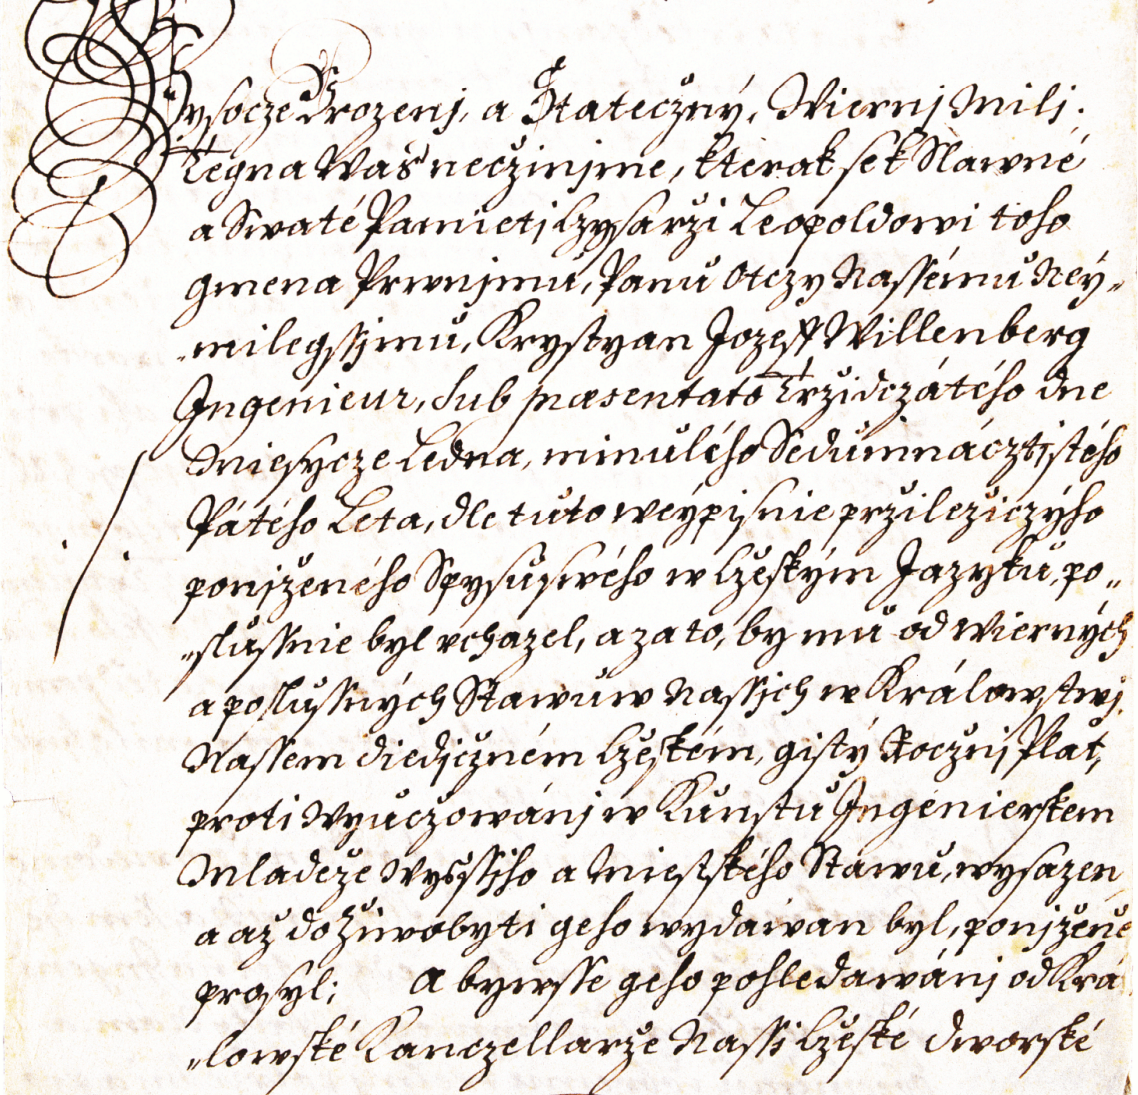 Wysocze Urozenj, a Statečzný, Wiernj Milj.
Tegna Waš nečzinjme, kterak se k Slawné
a Swaté Pamieti Czysarži Leopoldowi toho
gmena Prwnjmu, Panu Otczy Nassému Ney„
„milegssjmu, Krystyan Jozeff Willenberg
Ingenieur, sub præsentato Tržidczátého dne
Miesycze Ledna, minulého Sedumnácztistého
Pátého Leta, dle tuto weypisnie pržiležiczýho
ponjženého Spysu swého w Czeským Jazyku, po„
„slussnie byl uchazel, a za to, by mu od Wierných
a poslussných Stawuw Nassich w Králowstwj
Nassem diedičzném Czeském, gistý Ročznj Plat,
proti Wyučzowánj w Kunstu Ingénierskem
Mladeže Wyšssjho a Miestského Stawu, wysazen,
a až do Žiwobyti geho wydáwan byl, ponjženě
prosyl; A bywsse geho pohledawánj od Krá
„lowské Kanczellarže Nassi Czeské dworské